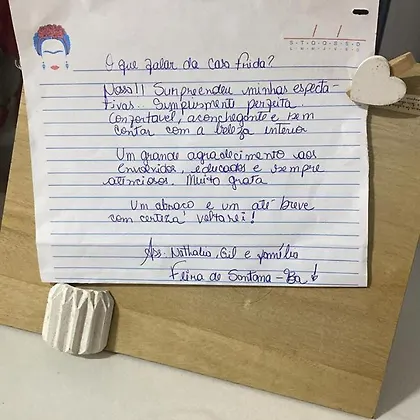 S T Q Q S S D
O que falar da casa frida?
Nossa!! Surpreendeu minhas expecta-
tivas.. Simplesmente perfeita.
Confortável, aconchegante e sem
contar com a beleza interior
Um grande agradecimento aos
envolvidos, educados e sempre
atenciosos. Muito grata
Um abraço e um até breve
com certeza voltarei!
Ass. Nathalia, Gil e família
Feira de Santana - Ba